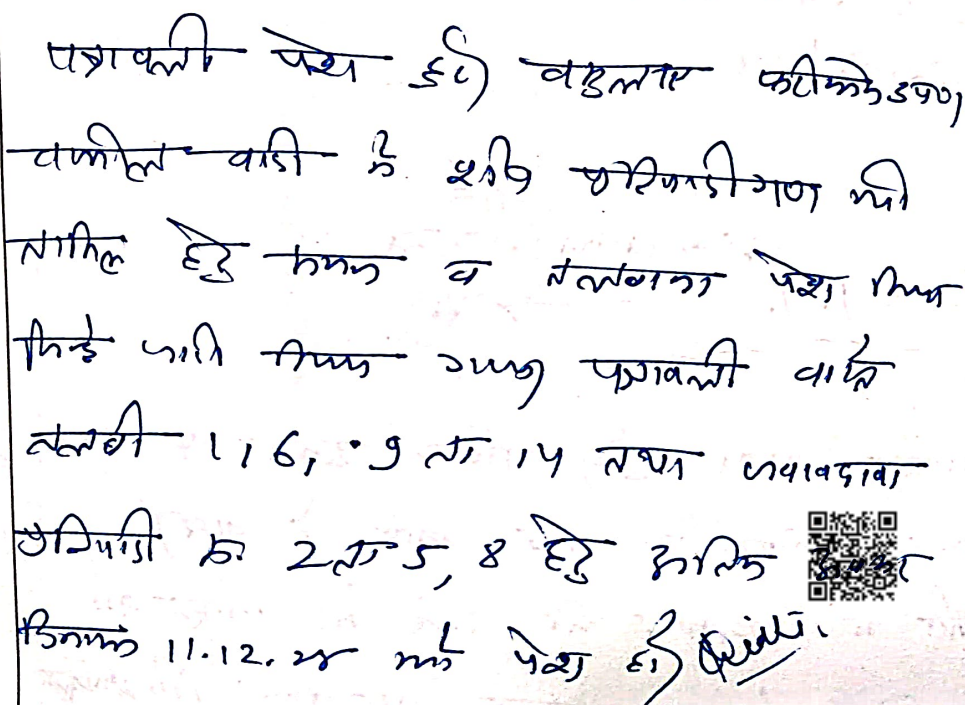 पत्रावली पेश हुई वकुलाए फरीकेन उप0।
वकील वादी ने शेष प्रतिवादीगण की
तामिल हेतु सम्मन व तलवाना पेश किया
जिन्हे जारी किया गया। पत्रावली वास्ते
तलबी 1, 6, 9 ता 14 तथा जवाबदावा
प्रतिवादी सं. 2 ता 5, 8 हेतु अन्तिम अवसर
दिनांक 11.12. को पेश हो।